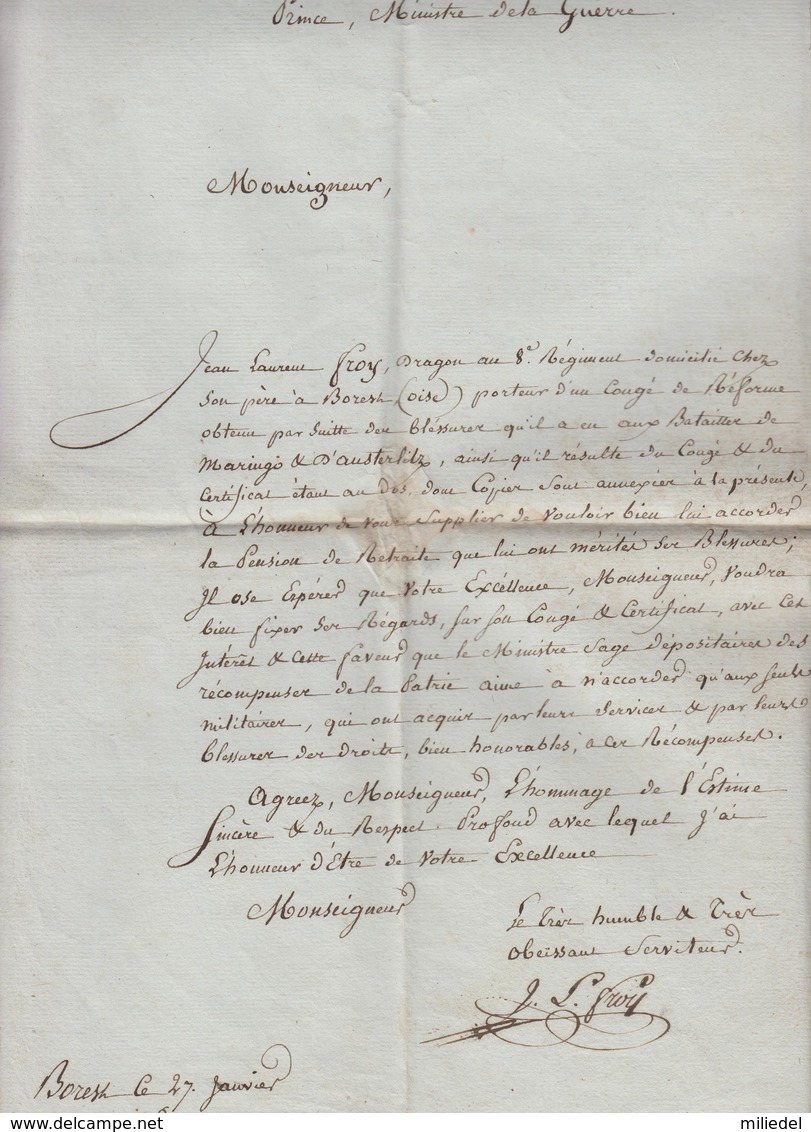 Prince, Ministre de la Guerre.
Monseigneur,
Jean Laurent froy, Dragon au 8e. Régiment domicilié chez
son père à Borest (oise) porteur d'un Congé de Réforme
obtenu par suitte des bléssures qu'il a eu aux Batailles de
Maringo & D'austerlitz, ainsi qu'il résulte du Congé & du
Certificat étant au Dos, dont Copies sont annexées à la présente,
à L'honneur de vous supplier de vouloir bien lui accorder
la Pension de Retraite que lui ont mérités ses Blessures;
Il ose Espérer que Votre Excéllence, Monseigneur, voudra
bien fixer ses Régards, sur son Congé & Certificat, avec cet
Intérêt & cette faveur que le Ministre sage dépositaire des
récompenses de la Patrie aime à n'accorder qu'aux seuls
militaires, qui ont acquis par leurs services & par leurs
blessures des droits, bien honorables, à ces Récompenses.
Agreez, Monseigneur, L'hommage de l'Estime
Sincère & du Respect Profond avec lequel J'ai
L'honneur d'Etre de Votre Excellence
Monseigneur
Le Très humble & Très
obeissant Serviteur.
J. L. froy
Borest Ce 27. Janvier
www.delcampe.net
miliedel